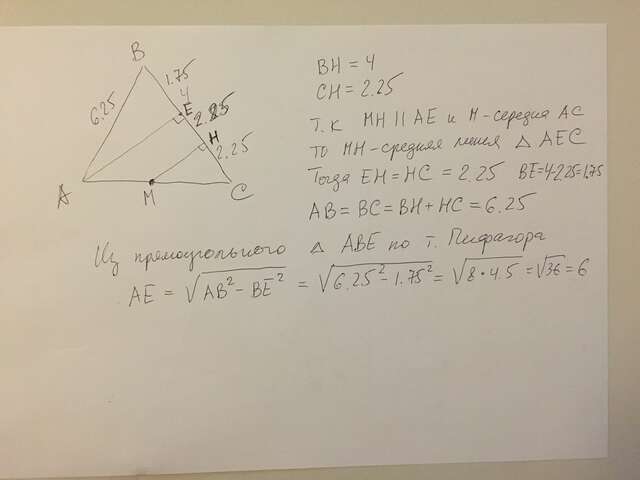 B
1.75
6.25
4
E
2.25
H
2.25
A
M
C
BH = 4
CH = 2.25
Т.к MH || AE и M-середина AC
то MH-средняя линия △ AEC
Тогда EH = HC = 2.25 BE=4-2.25=1.75
AB = BC = BH + HC = 6.25
Из прямоугольного △ ABE по т. Пифагора
AE = √AB² - BE² = √6.25² - 1.75² = √8 • 4.5 = √36 = 6